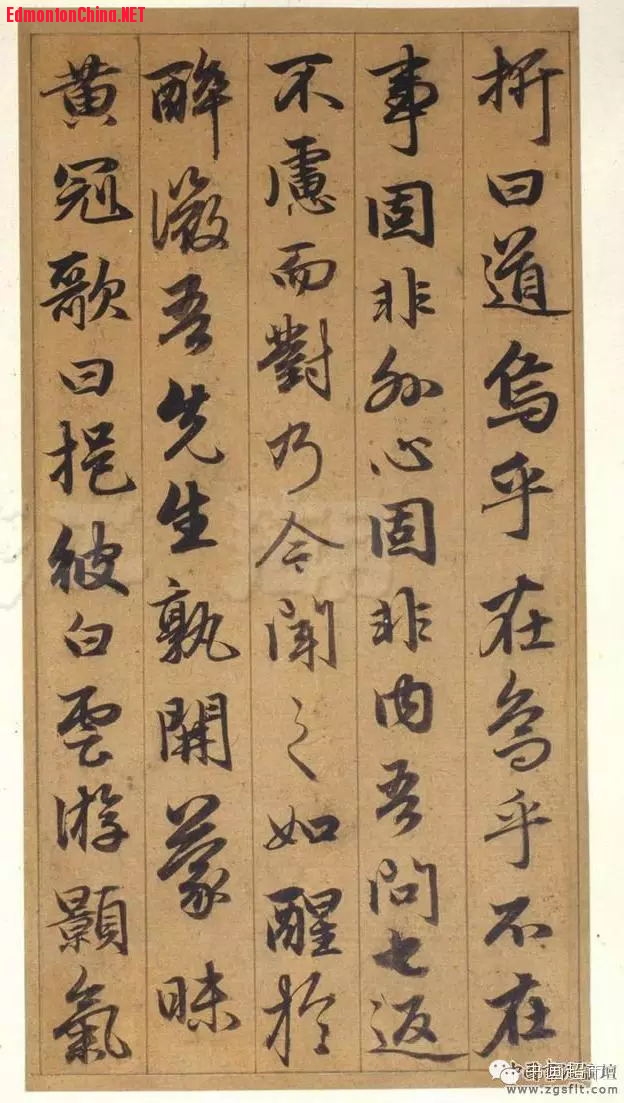 EdmontonChina.NET
折曰道烏乎在烏乎不在
事固非外心固非内吾問七返
不慮而對乃今聞之如醒於
醉微吾先生孰開蒙昧
黄冠歌曰挹彼白雲游顥氣
www.zgsflt.com